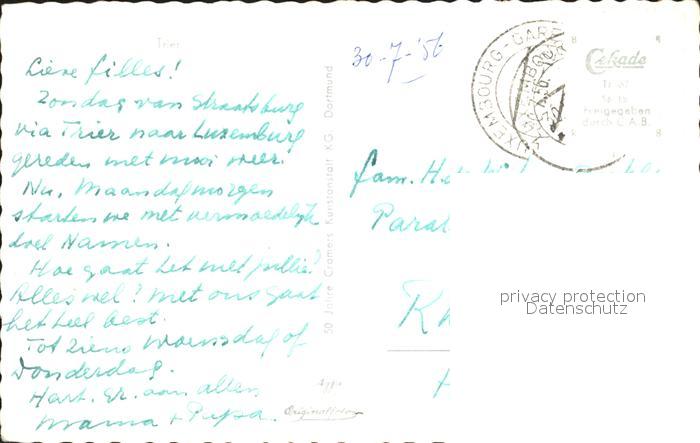 Trier
Lieve filles!
Zondag van Straatsburg
via Trier naar Luxemburg
gereden met mooi weer.
Nu, Maandagmorgen
starten we met vermoedelijk
doel Namen.
Hoe gaat het met jullie?
Alles wel? Met ons gaat
het heel best.
Tot ziens Woensdag of
Donderdag.
Hart. gr. aan allen
Mama + Papa.
50 Jahre Cramers Kunstanstalt KG. Dortmund
30-7-'56
LUXEMBOURG-GARE
Cekade
freigegeben
durch C.A.B.
fam. H
Paral
privacy protection
Datenschutz